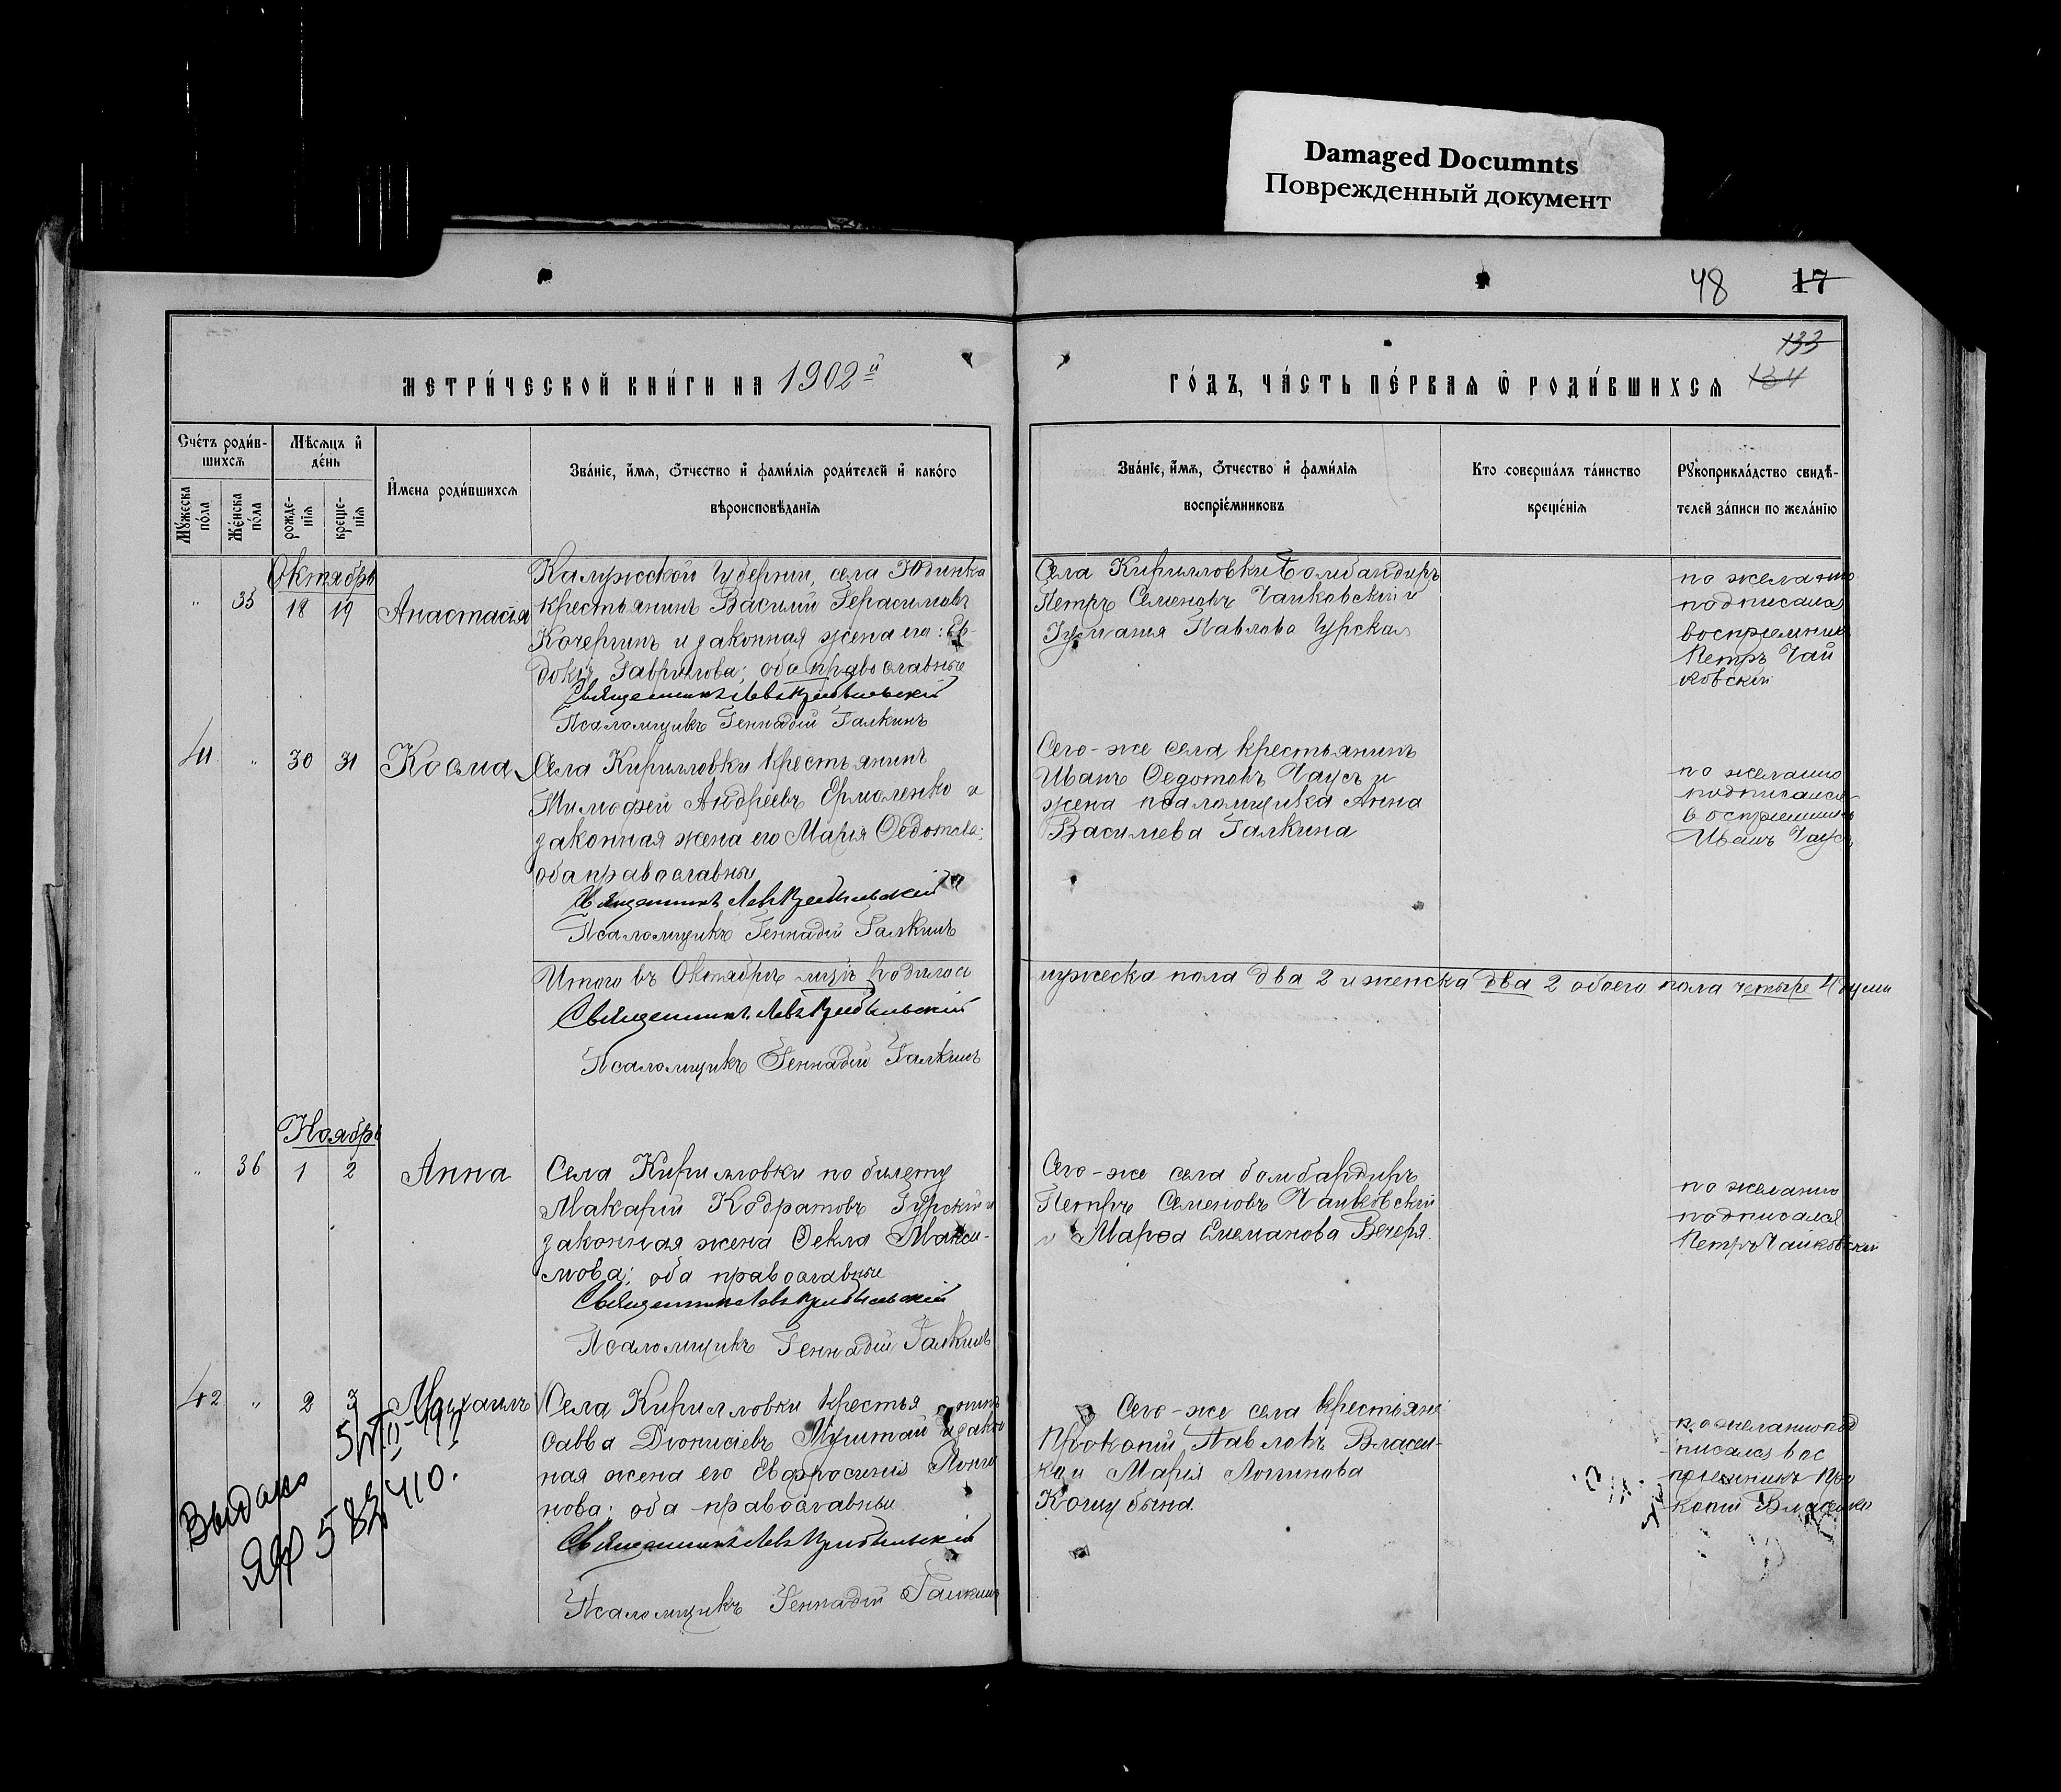 Damaged Documnts
Поврежденный документ
48 17
133
134
МЕТРИ́ЧЕСКОЙ КНИ́ГИ НА 1902й
ГО́ДЪ, ЧА́СТЬ ПЕ́РВАЯ Ѡ҆ РОДИ́ВШИХСЯ
Сче́тъ роди́в-
шихсѧ
Мѣ́сѧцъ и҆
де́нь
Мꙋ́жеска по́ла
Же́нска по́ла
рожде-
нїѧ
креще-
нїѧ
И҆мена роди́вшихсѧ
Зва́нїе, и҆́мѧ, ѻ҆́тчество и҆ фами́лїѧ роди́телей и҆ како́гѡ
вѣроисповѣ́данїѧ
Зва́нїе, и҆́мѧ, ѻ҆́тчество и҆ фами́лїѧ
воспрїе́мниковъ
Кто совершáлъ та́инство
креще́нїѧ
Рꙋкоприкла́дство свидѣ́-
телей за́писи по жела́нїю
Октябрь
" 35 18 19 Анастасія
Калужской Губерніи, села Юдинка
крестьянинъ Василій Герасимовъ
Кочергинъ и законная жена его: Ев-
докія Гаврилова; оба православные
Священникъ Левъ
Псаломщикъ Геннадій Галкинъ
Села Кирилловки Бомбандиръ
Петръ Семеновъ Чайковскій и
Павлова Гурская
по желанію
подписался
воспріемникъ
Петръ Чай
ковскій
41 " 30 31 Косма
Села Кирилловки крестьянинъ
Тимофей Андреевъ Ермоленко и
законная жена его Марія Ѳедотова;
оба православные
Священникъ Левъ
Псаломщикъ Геннадій Галкинъ
Сего-же села крестьянинъ
Иванъ Ѳедотовъ Чаусъ и
жена псаломщика Анна
Васильева Галкина
по желанію
подписался
воспріемникъ
Иванъ Чаусъ
Итого въ Октябрѣ мцѣ родилось
мужеска пола два 2 и женска два 2 обоего пола четыре 4 души
Священникъ Левъ
Псаломщикъ Геннадій Галкинъ
Ноябрь
" 36 1 2 Анна
Села Кирилловки по билету
Макарій Кодратовъ Гурскій и
законная жена Ѳекла Макси-
мова; оба православные
Священникъ Левъ
Псаломщикъ Геннадій Галкинъ
Сего-же села бомбардиръ
Петръ Семеновъ Чайковскій
и Марѳа Вечеря.
по желанію
подписался
Петръ Чайковскій
42 " 2 3 Михаилъ
Села Кирилловки крестьянинъ
Савва Діонисіевъ и закон
ная жена его Евфросинія Логги
нова; оба православные
Священникъ Левъ
Псаломщикъ Геннадій Галкинъ
Сего-же села крестьяне
Прокопій Павловъ Власен-
ко и Марія Логинова
Коцубына.
по желанію под
писался вос
пріемникъ Про
копій Власенко
Выдано
ЯФ 582410.